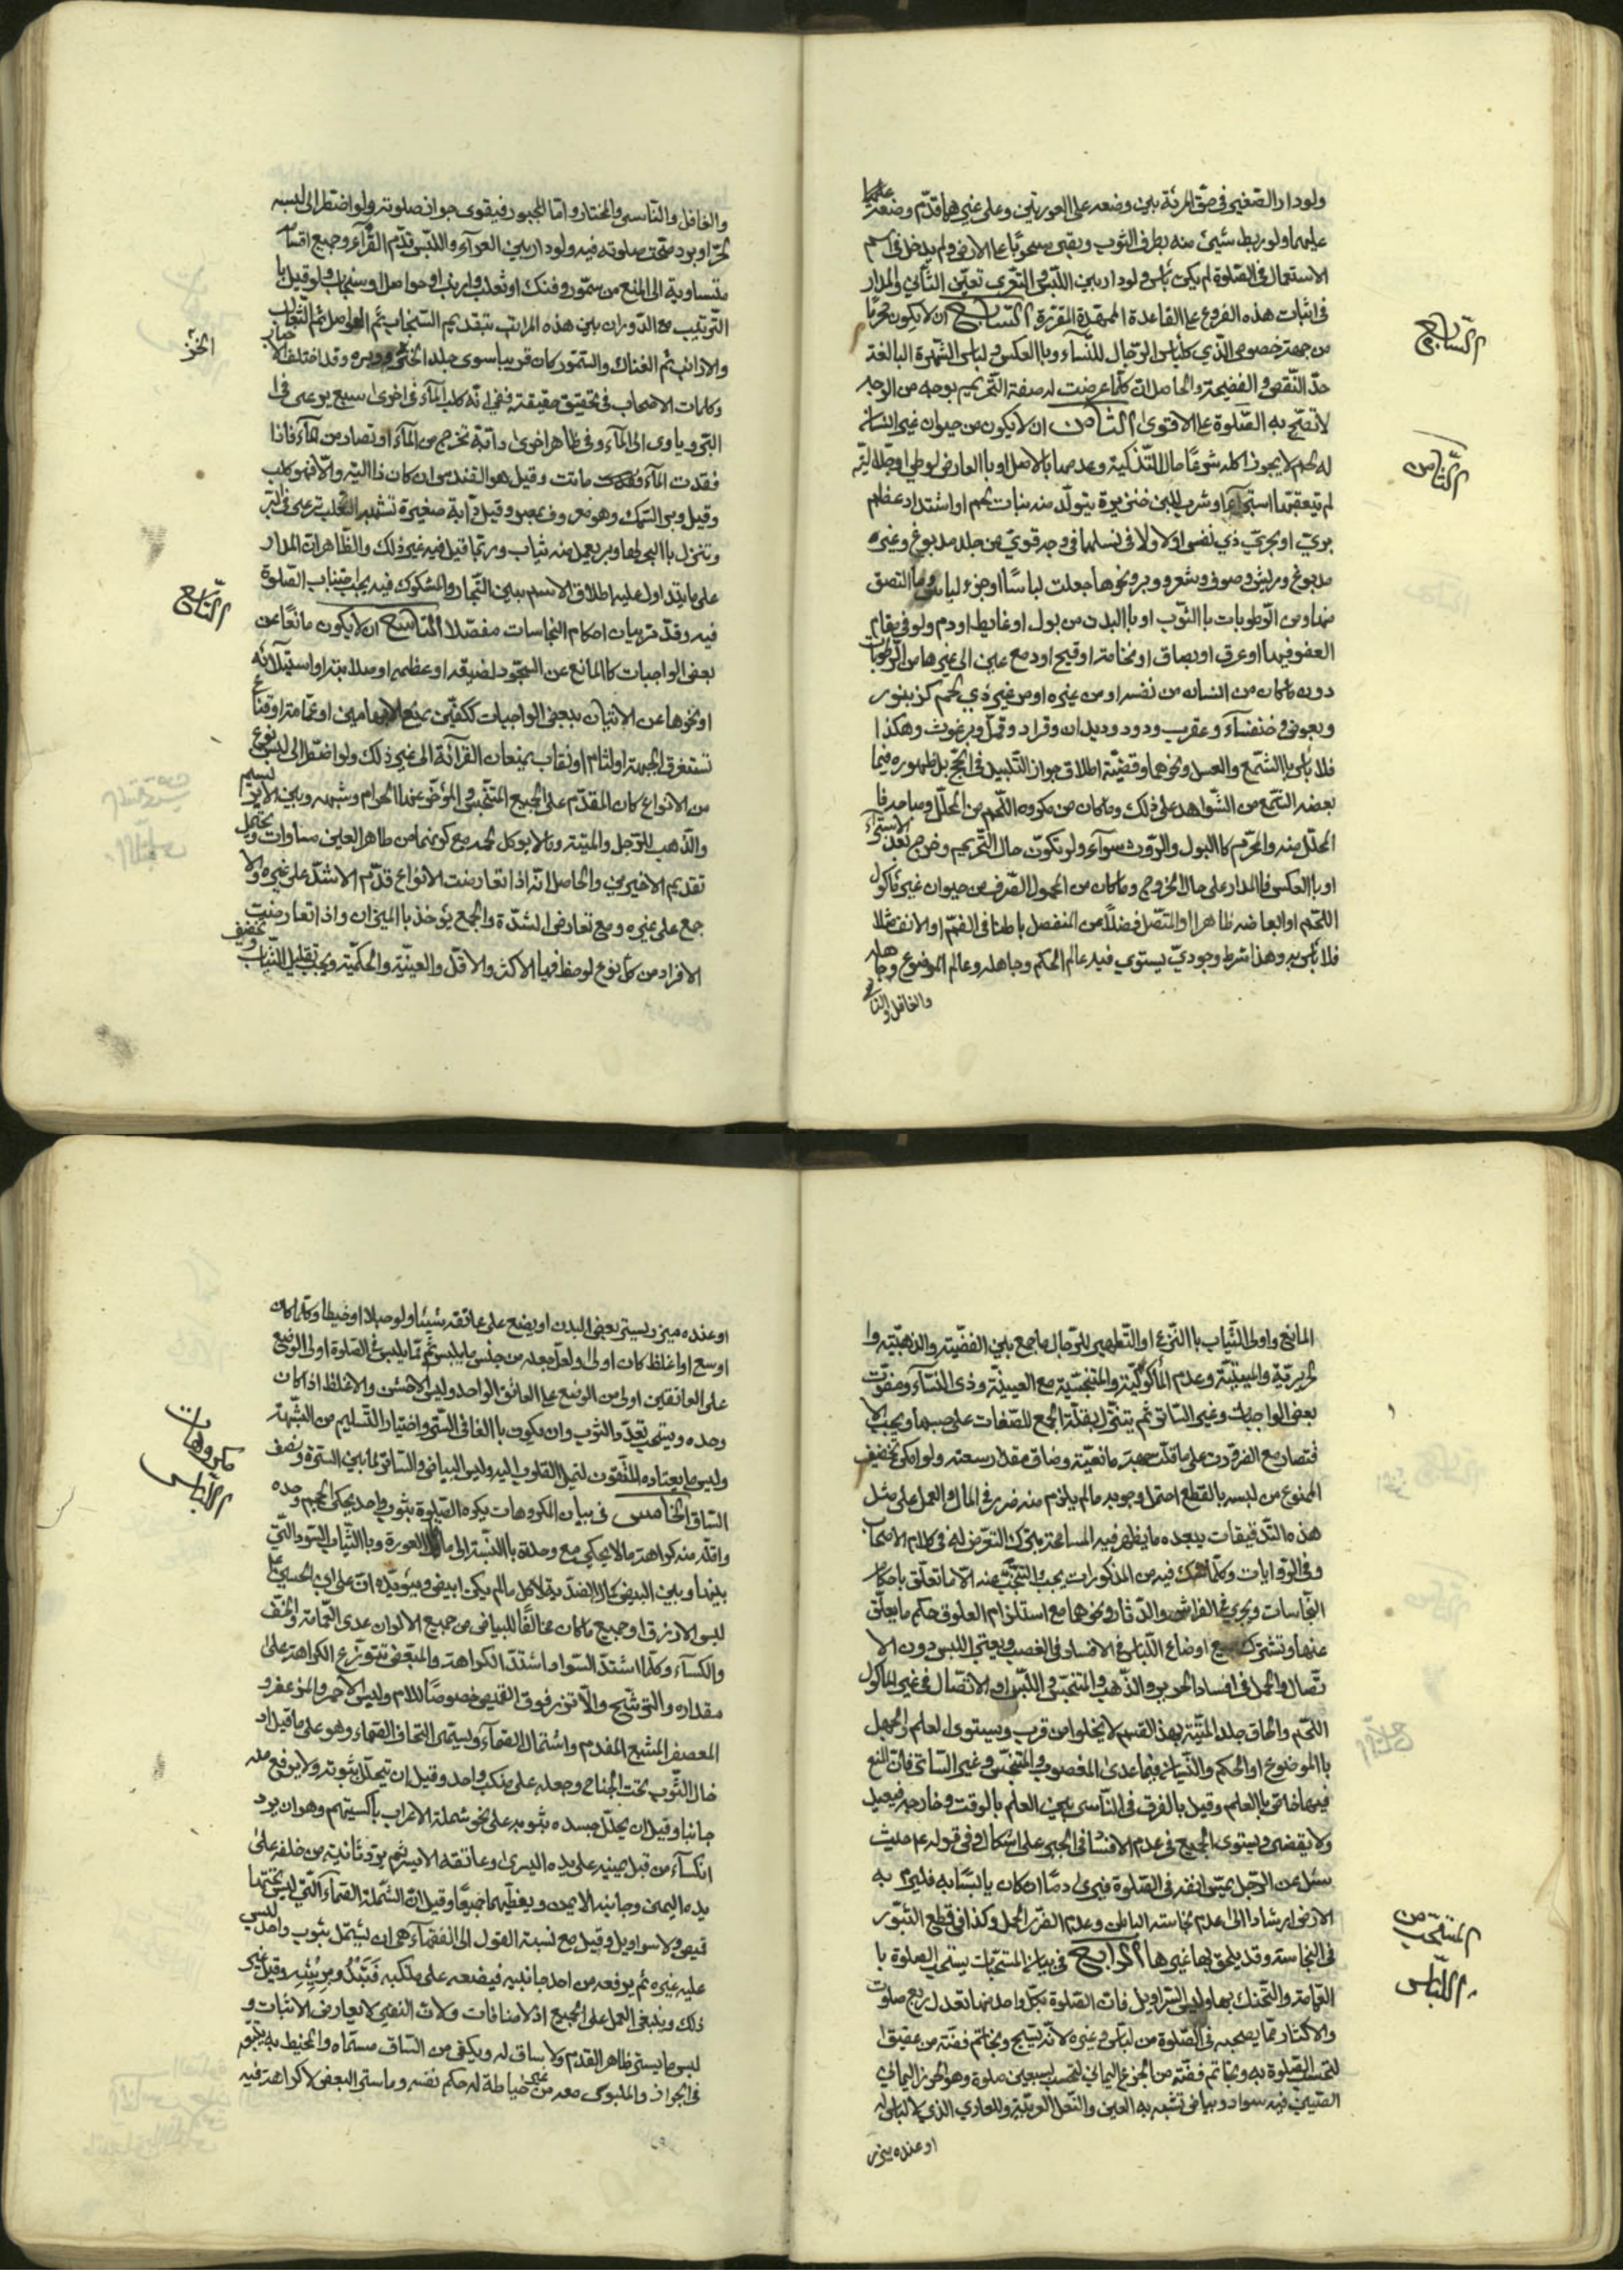 ولو دار الصغير في حق المرئة بين وضعه على العورتين وعلى غيرهما قدّم وضعه عليهما
عليهما ولو ربط شيئ منه بطرف الثوب وبقي مسحوبًا على الارض ولم يدخل في اسم
الاستعمال في الصّلوة لم يكن باس ولو دار بين اللبس والتعرّي تعيّن الثاني والمدار
في اثبات هذه الفروع على القاعدة الممهّدة المقرّرة السّابع ان لا يكون محرّمًا
من جهة خصوص الذي كلباس الرّجال للنّساء وباالعكس ولباس الشّهرة البالغة
حدّ النّقص والفضيحة والحاصل انّ كلّما عرضت له صفة التّحريم بوجه من الوجوه
لا تصّح به الصّلوة على الاقوى الثّامن ان لا يكون من حيوان غير انسان
له لحم لا يجوز اكله شرعًا حال التّذكية وعدمها باالاصل او باالعارض لوطي او جلّالية
لم يتعقبهما استبراء او شرب لبن خنزيرة يتولّد منه نبات لحم او اشتداد عظام
بريّ او بحريّ ذي نفس اولا ولا في نسلهما في وجه قويّ من جلد مدبوغ وغيره
مدبوغ وريش وصوف وشعر ووبر ونحوها جعلت لباسًا او جزء لباس وما التصق
منها ومن الرّطوبات باالثّوب او باالبدن من بول او غايط او دم ولو في مقام
العفو فيهما او عرق او بصاق او نخامة او قيح او دمع عين الى غيرها من الرّطوبات
دون ما كان من انسان من نفسه او من غيره او من غير ذي لحم كزنبور
وبعوض وخنفساء وعقرب ودود وديدان وقراد وقمل وبرغوث وهكذا
فلا باس باالشّمع والعسل ونحوهما وقضيّة اطلاق جواز التّلبيد في الحجّ بل ظهوره فيما
بعضه الشّمع من الشّواهد على ذلك وما كان من مكروه اللّحم من المحلّل وما حرم فا
المحلّل منه والمحرّم كاالبول والرّوث سوآء ولو تكوّن حال التّحريم وخرج بعد الاستبراء
او باالعكس فاالمدار على حال الخروج وما كان من المحمول الصّرف من حيوان غير مأكول
اللّحم او ابعاضه ظاهرا او المتّصل فضلًا عن المنفصل باطنا في الفمّ او الانف مثلا
فلا باس به وهذا شرط وجوديّ يستوي فيه عالم الحكم وجاهله وعالم الموضوع وجاهله
والغافل والناسي
السّابع
الثّامن
والغافل والنّاسي والمختار وامّا المجبور فيقوى جواز صلوته ولو اضطرّ الى لبسه
لحرّ او برد صحّت صلوته فيه ولو دار بين العرآء واللبس قدّم العرآء وجميع اقسامه
متساوية الى المنع من سمّور وفنك او ثعلب وارنب او حواصل او سنجاب ولو قيل با
التّرتيب مع الدّوران بين هذه المراتب بتقديم السّنجاب ثم الحواصل ثم الثعالب
والارانب ثم الفنك والسّمّور كان قريبا سوى جلد الخزّ ووبره وقد اختلف الاخبار
وكلمات الاصحاب في تحقيق حقيقته ففي انّه كلب المآء وفي اخرى سبع يرعى في ا
البرّ وياوي الى المآء وفي ظاهر اخرى دابّة تخرج من المآء او تصاد من المآء فاذا
فقدت المآء ماتت وقيل هو القندس وان كان ذا الية والّا فهو كلب
وقيل وبر السّمك وهو معروف بمصر وقيل دآبّة صغيرة تشبه الثعلب ترعى في البرّ
وتنزل باالبحر لها وبر يعمل منه ثياب وربّما قيل فيه غير ذلك والظّاهر انّ المدار
على ما يتداول عليه اطلاق الاسم بين التّجار والمشكوك فيه يجب اجتناب الصّلوة
فيه وقد مرّ بيان احكام النجاسات مفصّلا التّاسع ان لا يكون مانعًا عن
بعض الواجبات كاالمانع عن السّجود لضيقه او عظمه او صلابته او استيلائه
او نحوها عن الاتيان ببعض الواجبات ككفّين بمنع الابهامين او عمامة او قناع
تستغرق الجبهة او لثام او نقاب يمنعان القرائة الى غير ذلك ولو اضطرّ الى لبس نوع
من الانواع كان المقدّم على الجميع المتنجّس والمؤخّر عنها الحرام وشبهه وبين الابريسم
والذّهب للرّجل والميتة وما لا يوكل لحمه مع كونهما من طاهر العين مساوات ويحتمل
تقديم الاخيرين والحاصل انّه اذا تعارضت الانواع قدّم الاشدّ على غيره والا
جمع على غيره ومع تعارض الشدّة والجمع يؤخذ باالميزان واذا تعارضت
الافراد من كلّ نوع لوحظ فيها الاكثر والاقلّ والعينيّة والحكميّة ويجب تقليل الثياب وتخفيف
الخزّ
التّاسع
المانع واولى الثّياب باالنّزع او التّطهير للرّجال ما جمع بين الفضّيّة والذهبيّة وا
لحريريّة والميتيّة وعدم المأكوليّة والمتنجسّية مع العينيّة وذي النسآء ومفوّت
بعض الواجبات وغير السّاتر ثم يتنزّل بقلّة الجمع للصّفات على حسبها ويجب الا
قتصار مع الفردين على ما قلّت جهة مانعيّته وضاق مقدار سعته ولو امكن تخفيف
الممنوع من لبسه باالقطع احتمل وجوبه مالم يلزم منه ضرر في المال والعمل على مثل
هذه التّدقيقات يبعده ما يظهر فيه المسامحة بترك التعرّض له في كلام الاصحاب
وفي الرّوايات وكلّما شكّ فيه من المذكورات يجب التّجنّب عنه الّا ما تعلّق باحكام
النّجاسات ويجري في الفراش والدّثار ونحوهما مع استلزام العلوق حكم ما يعلق
عنها وتشترك جميع اوضاع اللّباس في الافساد في الغصب ويعتبر اللبس دون الا
تّصال والحمل في افساد الحرير والذّهب والمتنجّس واللّبس او الاتّصال في غير المأكول
اللّحم والحاق جلد الميتة بهذا القسم لا يخلو من قرب ويستوى العلم والجهل
باالموضوع او الحكم والنّسيان فيما عدى المغصوب والمتنجّس وغير السّاتر فانّ المنع
فيها خاصّ باالعلم وقيل بالفرق في النّاسي بين العلم بالوقت وخارجه فيعيد
ولا يقضي ويستوى الجميع في عدم الافساد في الجبر على اشكال وفي قوله ع حيث
سئل عن الرّجل يمسّ انفه في الصّلوة فيرى دمًا ان كان يابسًا به فليرم به
الارض ارشاد الى عدم نجاسته الباطن وعدم الضرر بالحمل وكذا في قطع الثبور
في النجاسة وقد يلحق بها غيرها الرّابع في بيان المستحبّات يستحب الصلوة با
العمامة والتّحنّك بها ولبس السّراويل فانّ الصّلوة بكلّ واحد منهما تعدل اربع صلوات
والاكثار ممّا يصحبه في الصّلوة من لباس وغيره لانّه يسبّح وبخاتم فضّة من عقيق ا
لتحسب الصّلوة به وبخاتم فضّة من الجزع اليماني لتحسب بسبعين صلوة وهو الخرز اليماني
الصّيني فيه سواد وبياض تشبه به العين والنّعل العربيّة وللعاري الذي لا لباس له
او عنده ميزر
المستحبّ من
اللّباس
او عنده ميزر يستر بعض البدن او يضع على عاتقه شيئا ولو حبلا او خيطا وكلّما كان
اوسع او اغلظ كان اولى ولعلّ جعله من جنس ما يلبس ثم ممّا يلبس في الصّلوة اولى والوضع
على العاتقين اولى من الوضع على العاتق الواحد ولبس الاخشن والاغلظ اذا كان
وحده ويستحب تعدّد الثوب وان يكون باالغا في السّتر واختيار التّسليم من الشّبهة
ولبس ما يعتاده المتّقون لتميل القلوب اليه ولبس البياض والسّاتر لما بين السّترة ونصف
السّاق الخامس في بيان المكروهات يكره الصّلوة بثوب واحد يحكي الحجم وحده
واقلّ منه كراهة ما لا يحكي مع وحدته باالنّسبة الى ما العورة وباالثّياب السّود التي
بينها وبين البيض كمال الضّدّ بل كل مالم يكن ابيض ويؤيّده انّ علي ابن الحسين ع
لبس الازرق او جميع ما كان مخالفًا للبياض من جميع الالوان عدى العمامة والخفّ
والكسآء وكلّما اشتدّ السّواد اشتدّ الكراهة والمتبعّض تتوزّع الكراهة على
مقداره والتوشّح والاتّزر فوق القميص خصوصًا للامام ولبس الاحمر والمزعفر و
المعصفر المشبع المفدم واشتمال الصّمآء ويسمّى التحاف الصّماء وهو على ما قيل اد
خال الثّوب تحت الجناح وجعله على منكب واحد وقيل ان يتجلّل بثوبه ولا يرفع منه
جانبا وقيل ان يجلّل جسده بثوبه على نحو شملة الاعراب باكسيتهم وهو ان يرد
الكسآء من قبل يمينه على يده اليسرى وعاتقه الايسر ثم يرد ثانيته من خلفه على
يده اليمنى وجانبه الايمن ويغطّيهما جميعًا وقيل انّ الشّملة الصّماء الّتي ليس تحتها
قميص ولا سراويل وقيل مع نسبة القول الى الفقهآء هي ان يشتمل بثوب واحد ليس
عليه غيره ثم يرفعه من احد جانبيه فيضعه على منكبه فتبدو منه وقيل غير
ذلك وينبغي العمل على الجميع اذ لا منافات ولانّ النفي لا يعارض الاثبات و
لبس ما يستر ظاهر القدم ولا ساق له ويكفي من السّاق مسمّاه والمخيط به يقوّم
في الجواز والملبوس معه من غير خياطة له حكم نفسه وما ستر البعض لا كراهة فيه
مكروهات
اللّباس